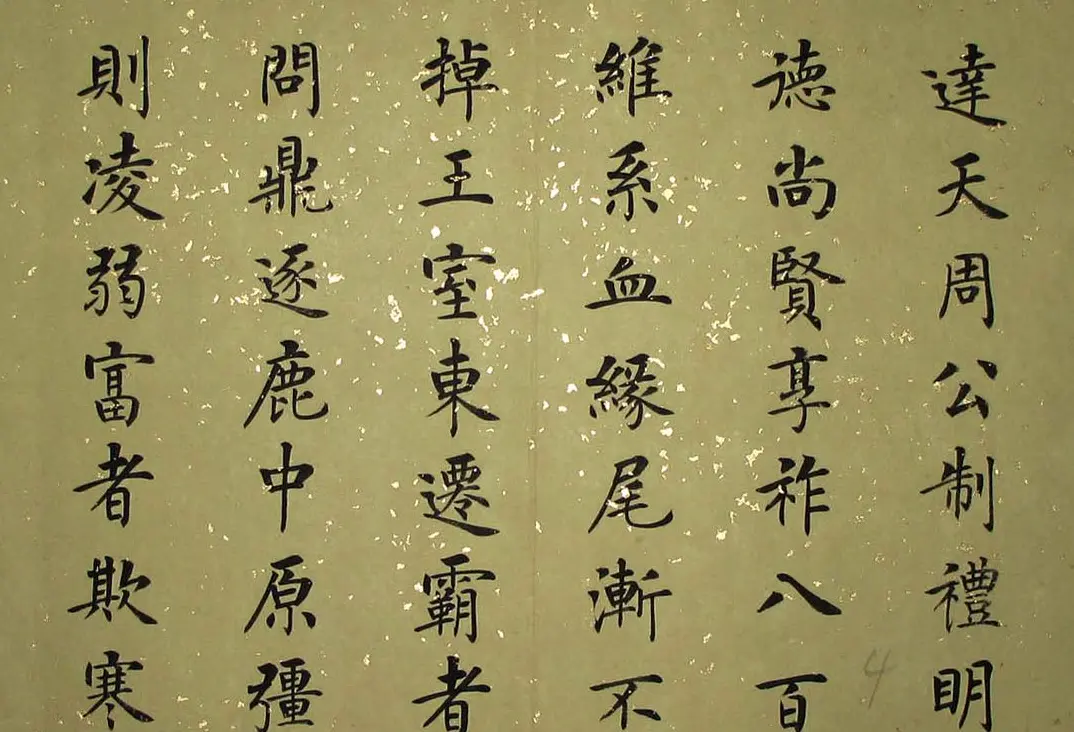 達天周公制禮明
德尚賢享祚八百
維系血緣尾漸不
掉王室東遷霸者
問鼎逐鹿中原彊
則凌弱富者欺寒
4